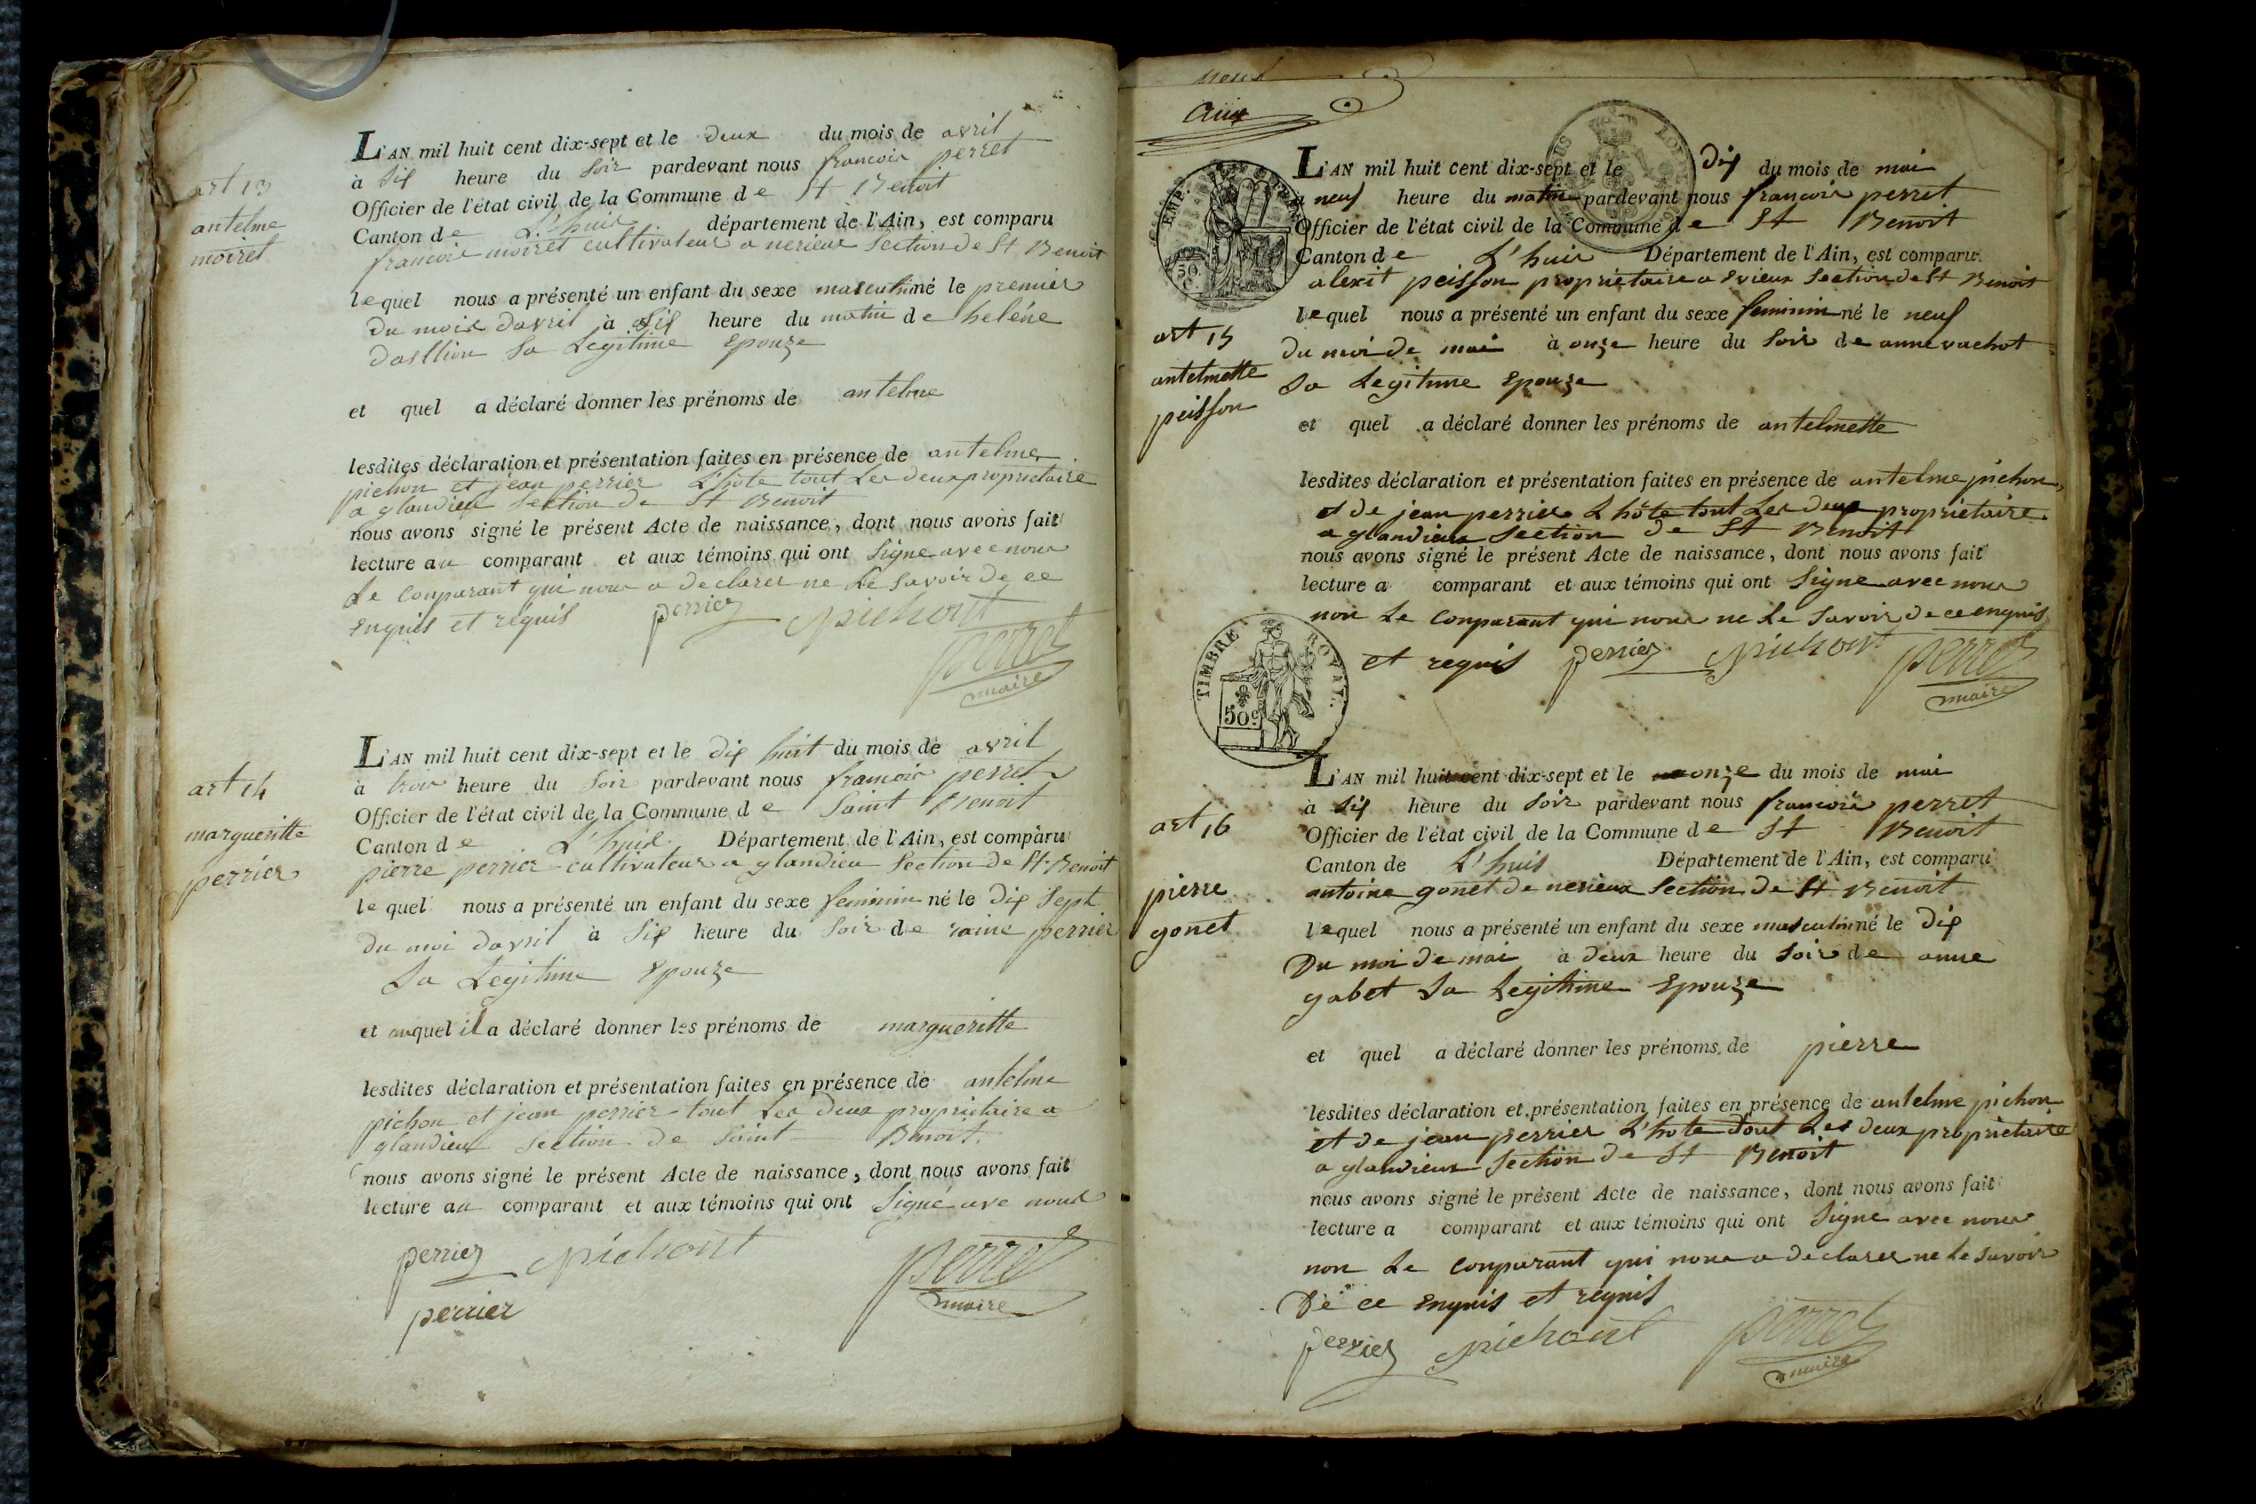 art 13
antelme
moiret
L'AN mil huit cent dix-sept et le deux du mois de avril
à six heure du soir pardevant nous francois perret
Officier de l'état civil de la Commune de St Benoit
Canton de L'huis département de l'Ain, est comparu
francois moiret cultivateur a nerieux section de St Benoit
lequel nous a présenté un enfant du sexe masculin né le premier
du mois davril à six heure du matin de heléne
dasllion sa Legitime Epouze
et quel a déclaré donner les prénoms de antelme
lesdites déclaration et présentation faites en présence de antelme
pichon et jean perrier L'hote tout Les deux propriétaire
a glandieu section de St Benoit
nous avons signé le présent Acte de naissance, dont nous avons fait
lecture au comparant et aux témoins qui ont Signe avec nous
Le conparant qui nous a declarer ne Le savoir de ce
enquis et requis perrier pichont
perret
maire
art 14
margueritte
perrier
L'AN mil huit cent dix-sept et le dix huit du mois de avril
à trois heure du soir pardevant nous francois perret
Officier de l'état civil de la Commune de Saint Benoit
Canton de L'huis Département de l'Ain, est comparu
pierre perrier cultivateur a glandieu Section de St Benoit
lequel nous a présenté un enfant du sexe feminin né le dix sept
du moi davril à six heure du soir de raine perrier
sa Legitime Epouze
et auquel il a déclaré donner les prénoms de margueritte
lesdites déclaration et présentation faites en présence de antelme
pichon et jean perrier tout Les deux propriétaire a
glandieu section de Saint Benoit.
nous avons signé le présent Acte de naissance, dont nous avons fait
lecture au comparant et aux témoins qui ont Signé ave nous
perrier pichont perret
maire
perrier
aux
EMP.
50.
C.
L'AN mil huit cent dix-sept et le dix du mois de mai
a neuf heure du matin pardevant nous francois perret
Officier de l'état civil de la Commune de St Benoit
Canton de L'huis Département de l'Ain, est comparu
alexit peisson propriétaire a Evieux section de St Benoit
art 15
antelmette
peisson
lequel nous a présenté un enfant du sexe feminin né le neuf
du moi de mai à onze heure du soir de anne vachot
sa Legitime Epouze
et quel a déclaré donner les prénoms de antelmette
lesdites déclaration et présentation faites en présence de antelme pichon,
et de jean perrier L'hôte tout Les deux propriétaire
a glandieux section de St Benoit
nous avons signé le présent Acte de naissance, dont nous avons fait
lecture a comparant et aux témoins qui ont Signe avec nous
non Le conparant qui nous ne Le savoir de ce enquis
et requis perrier pichont perret
maire
TIMBRE ROYAL.
50c
art 16
pierre
gonet
L'AN mil huit cent dix-sept et le onze du mois de mai
à six heure du soir pardevant nous francois perret
Officier de l'état civil de la Commune de St Benoit
Canton de L'huis Département de l'Ain, est comparu
antoine gonet de nerieux section de St Benoit
lequel nous a présenté un enfant du sexe masculin né le dix
Du moi de mai a deux heure du soir de anne
gabet sa Legitime Epouze
et quel a déclaré donner les prénoms de pierre
lesdites déclaration et présentation faites en présence de antelme pichon
et de jean perrier L'hote tout Les deux propriétaire
a glandieux section de St Benoit
nous avons signé le présent Acte de naissance, dont nous avons fait
lecture a comparant et aux témoins qui ont Signe avec nous
non Le conparant qui nous a declarer ne Le savoir
De ce enquis et requis
perrier pichont perret
maire